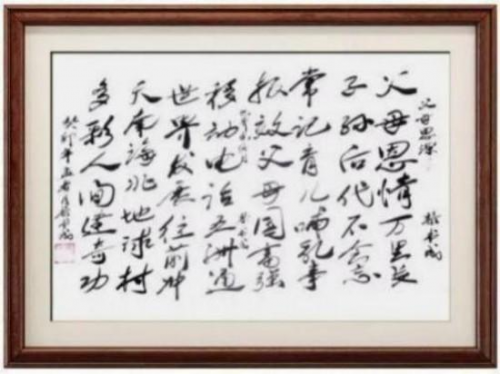 父母恩深
父母恩情万里长
子孙后代不忘
常记育儿哺乳事
报效父母国富强
移动电话五洲通
世界发展往前冲
天南海北地球村
多彩人间建奇功
癸卯年